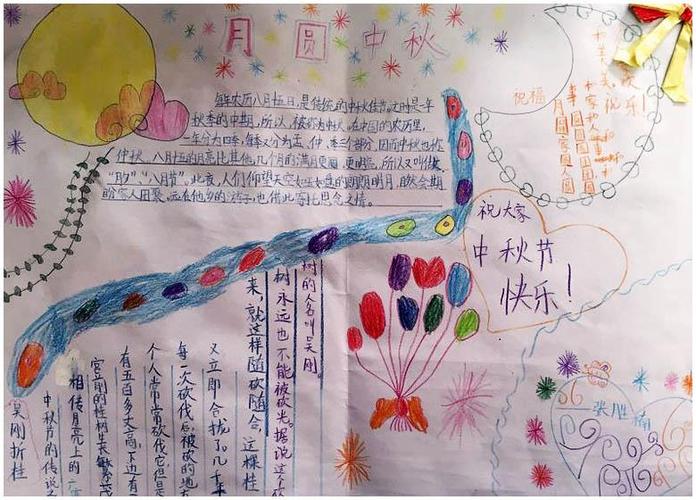 月圆中秋
每年农历八月十五日,是传统的中秋佳节。这时是一年
秋季的中期,所以,被称为中秋。在中国的农历里,
一年分为四季,每季又分为孟、仲、季三个部分,因而中秋也称
仲秋。八月十五的月亮比其他几个月的满月更圆,更明亮,所以又叫做
“月夕”,“八月节”。此夜,人们仰望天空如玉如盘的朗朗明月,自然会期
盼家人团聚。远在他乡的游子,也借此寄托思念之情。
祝福
月圆家圆人圆
事圆
祝大家
中秋节
快乐!
树的人名叫吴刚。
树永远也不能被砍光。据说这个砍
来,就这样随砍随合,这棵桂
又立即合拢了。几千年
每一次砍伐后,被砍的地方
个人常常砍伐它,但是
有五百多丈高,下边有一
宫前的桂树生长繁茂
相传月亮上的广
中秋节的传说之
吴刚折桂
张胜楠